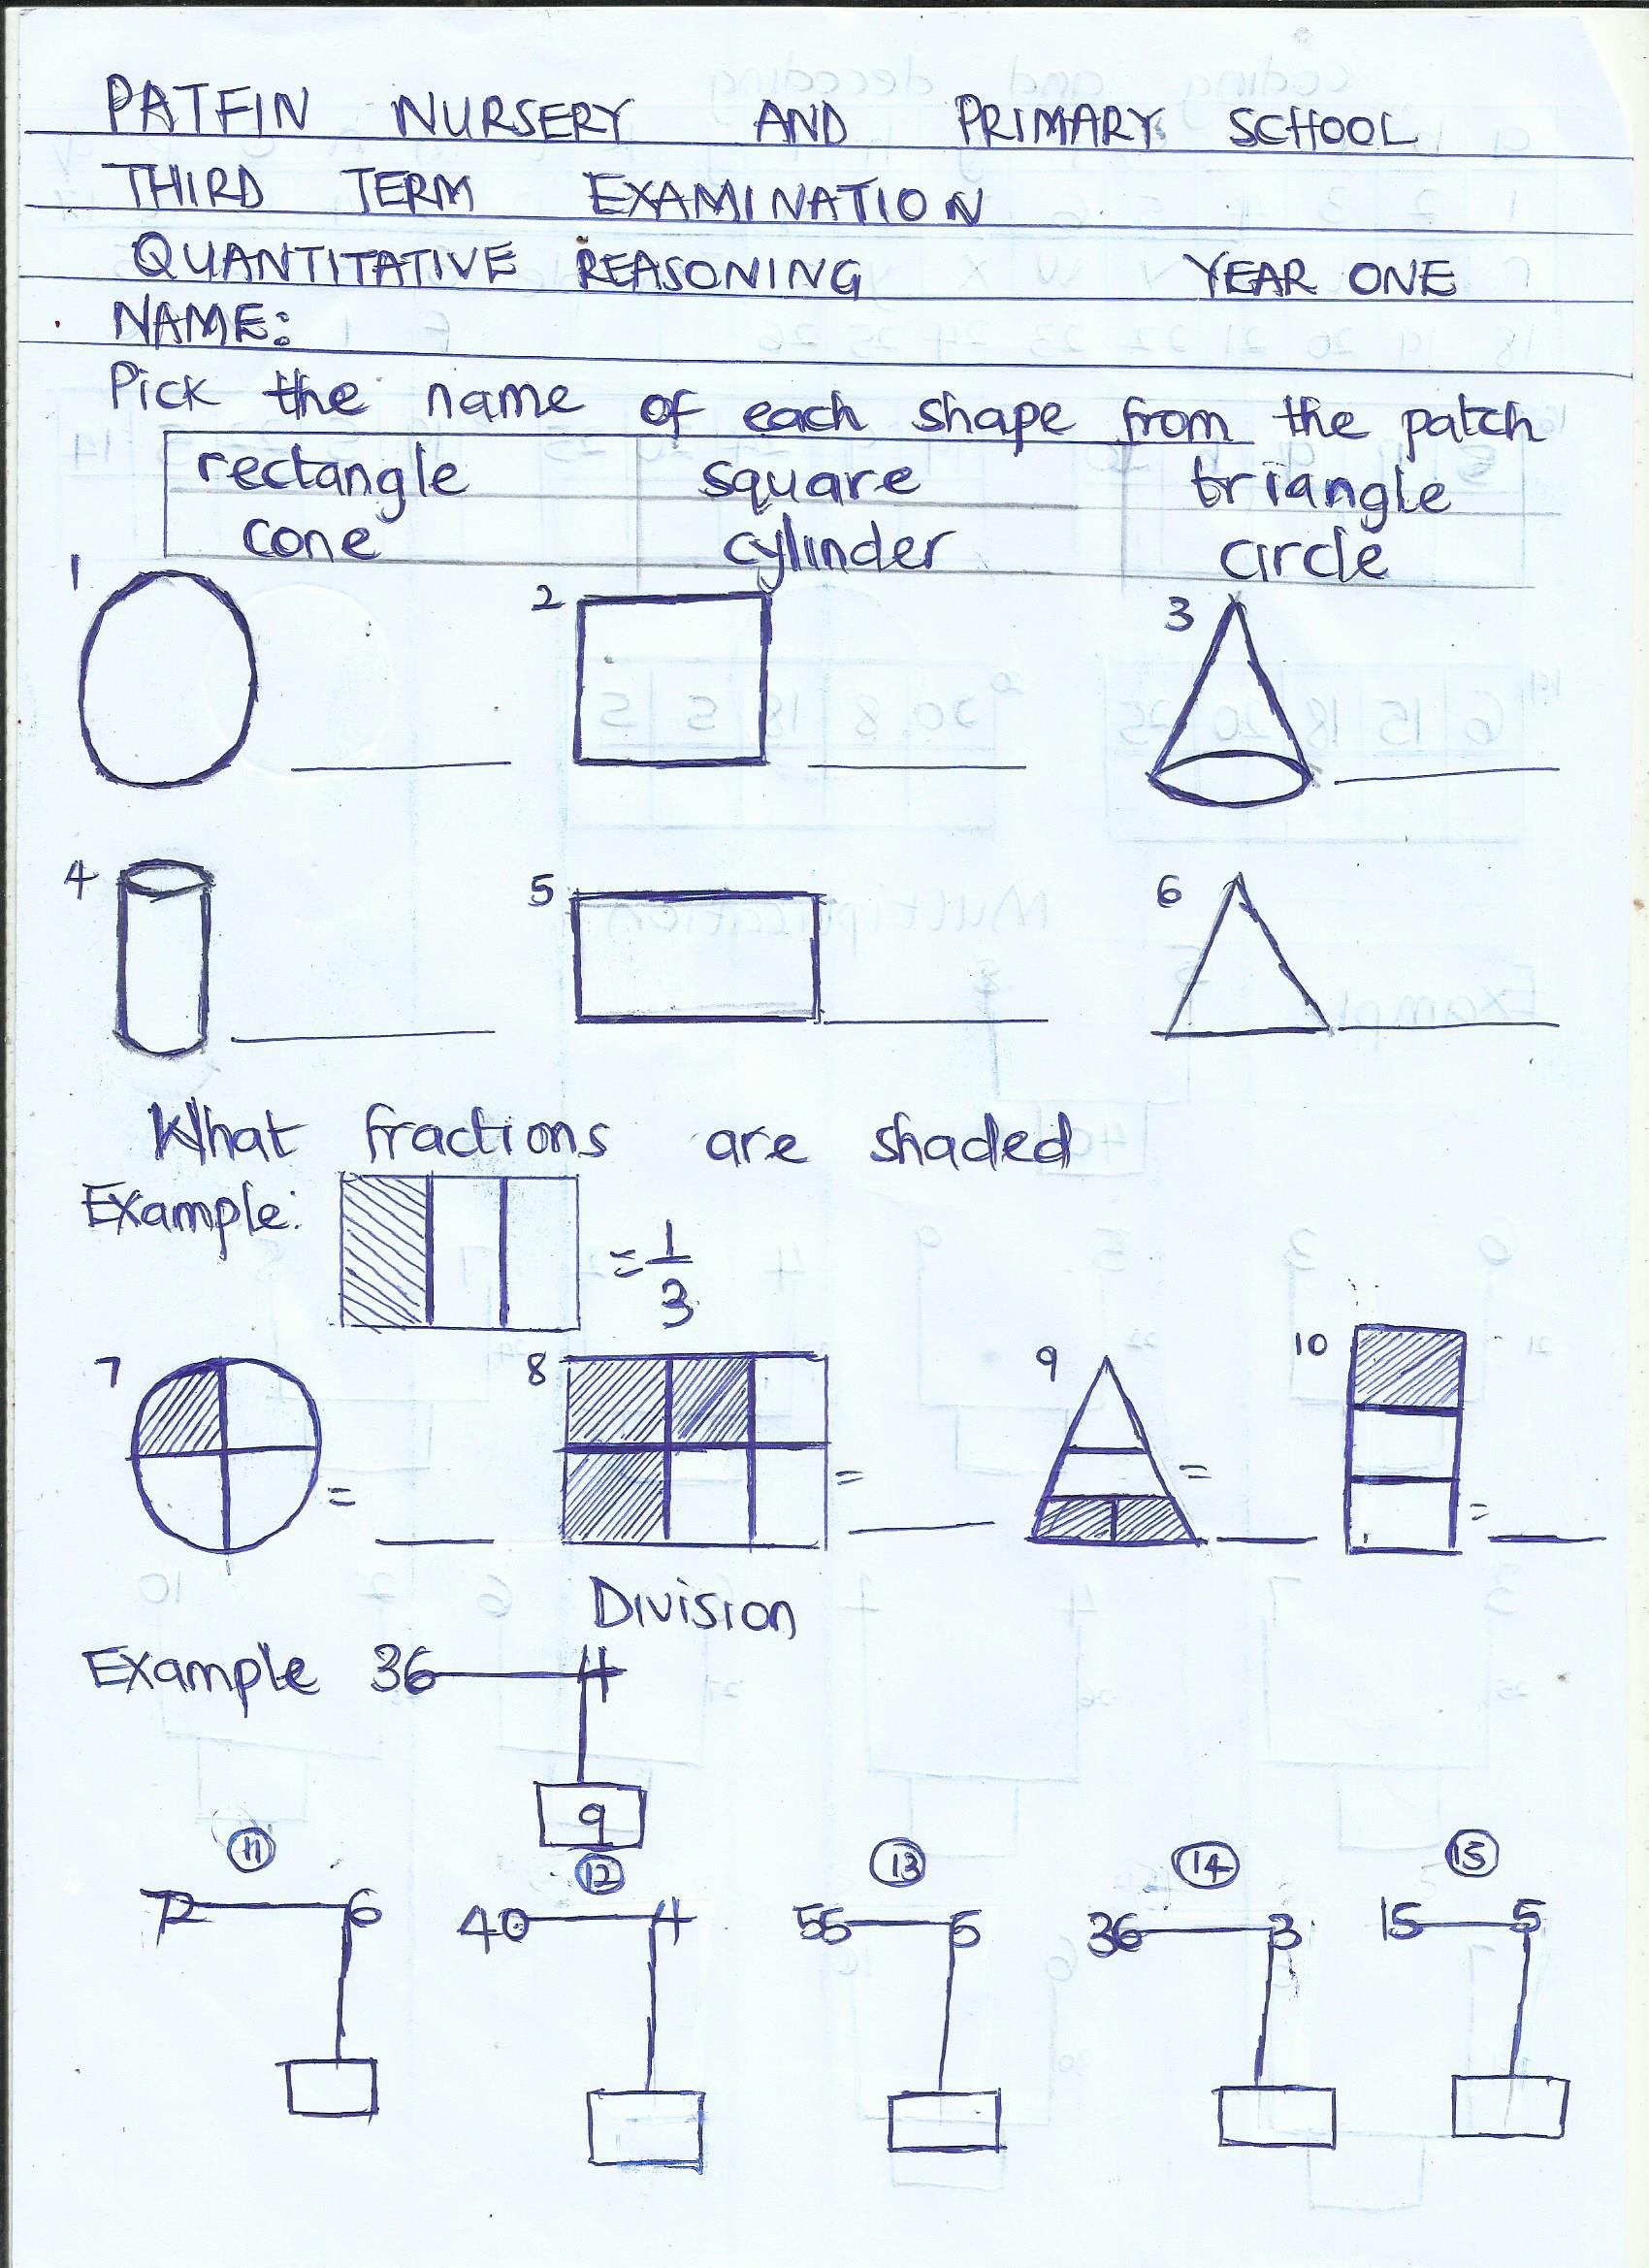 PATFIN NURSERY AND PRIMARY SCHOOL
THIRD TERM EXAMINATION
QUANTITATIVE REASONING YEAR ONE
NAME:
Pick the name of each shape from the patch
rectangle square triangle
cone cylinder circle
1 2 3
4 5 6
What fractions are shaded
Example: = 1/3
7 = 8 = 9 = 10 =
Division
Example 36 4
9
11 12 13 14 15
72 6 40 4 55 5 36 3 15 5